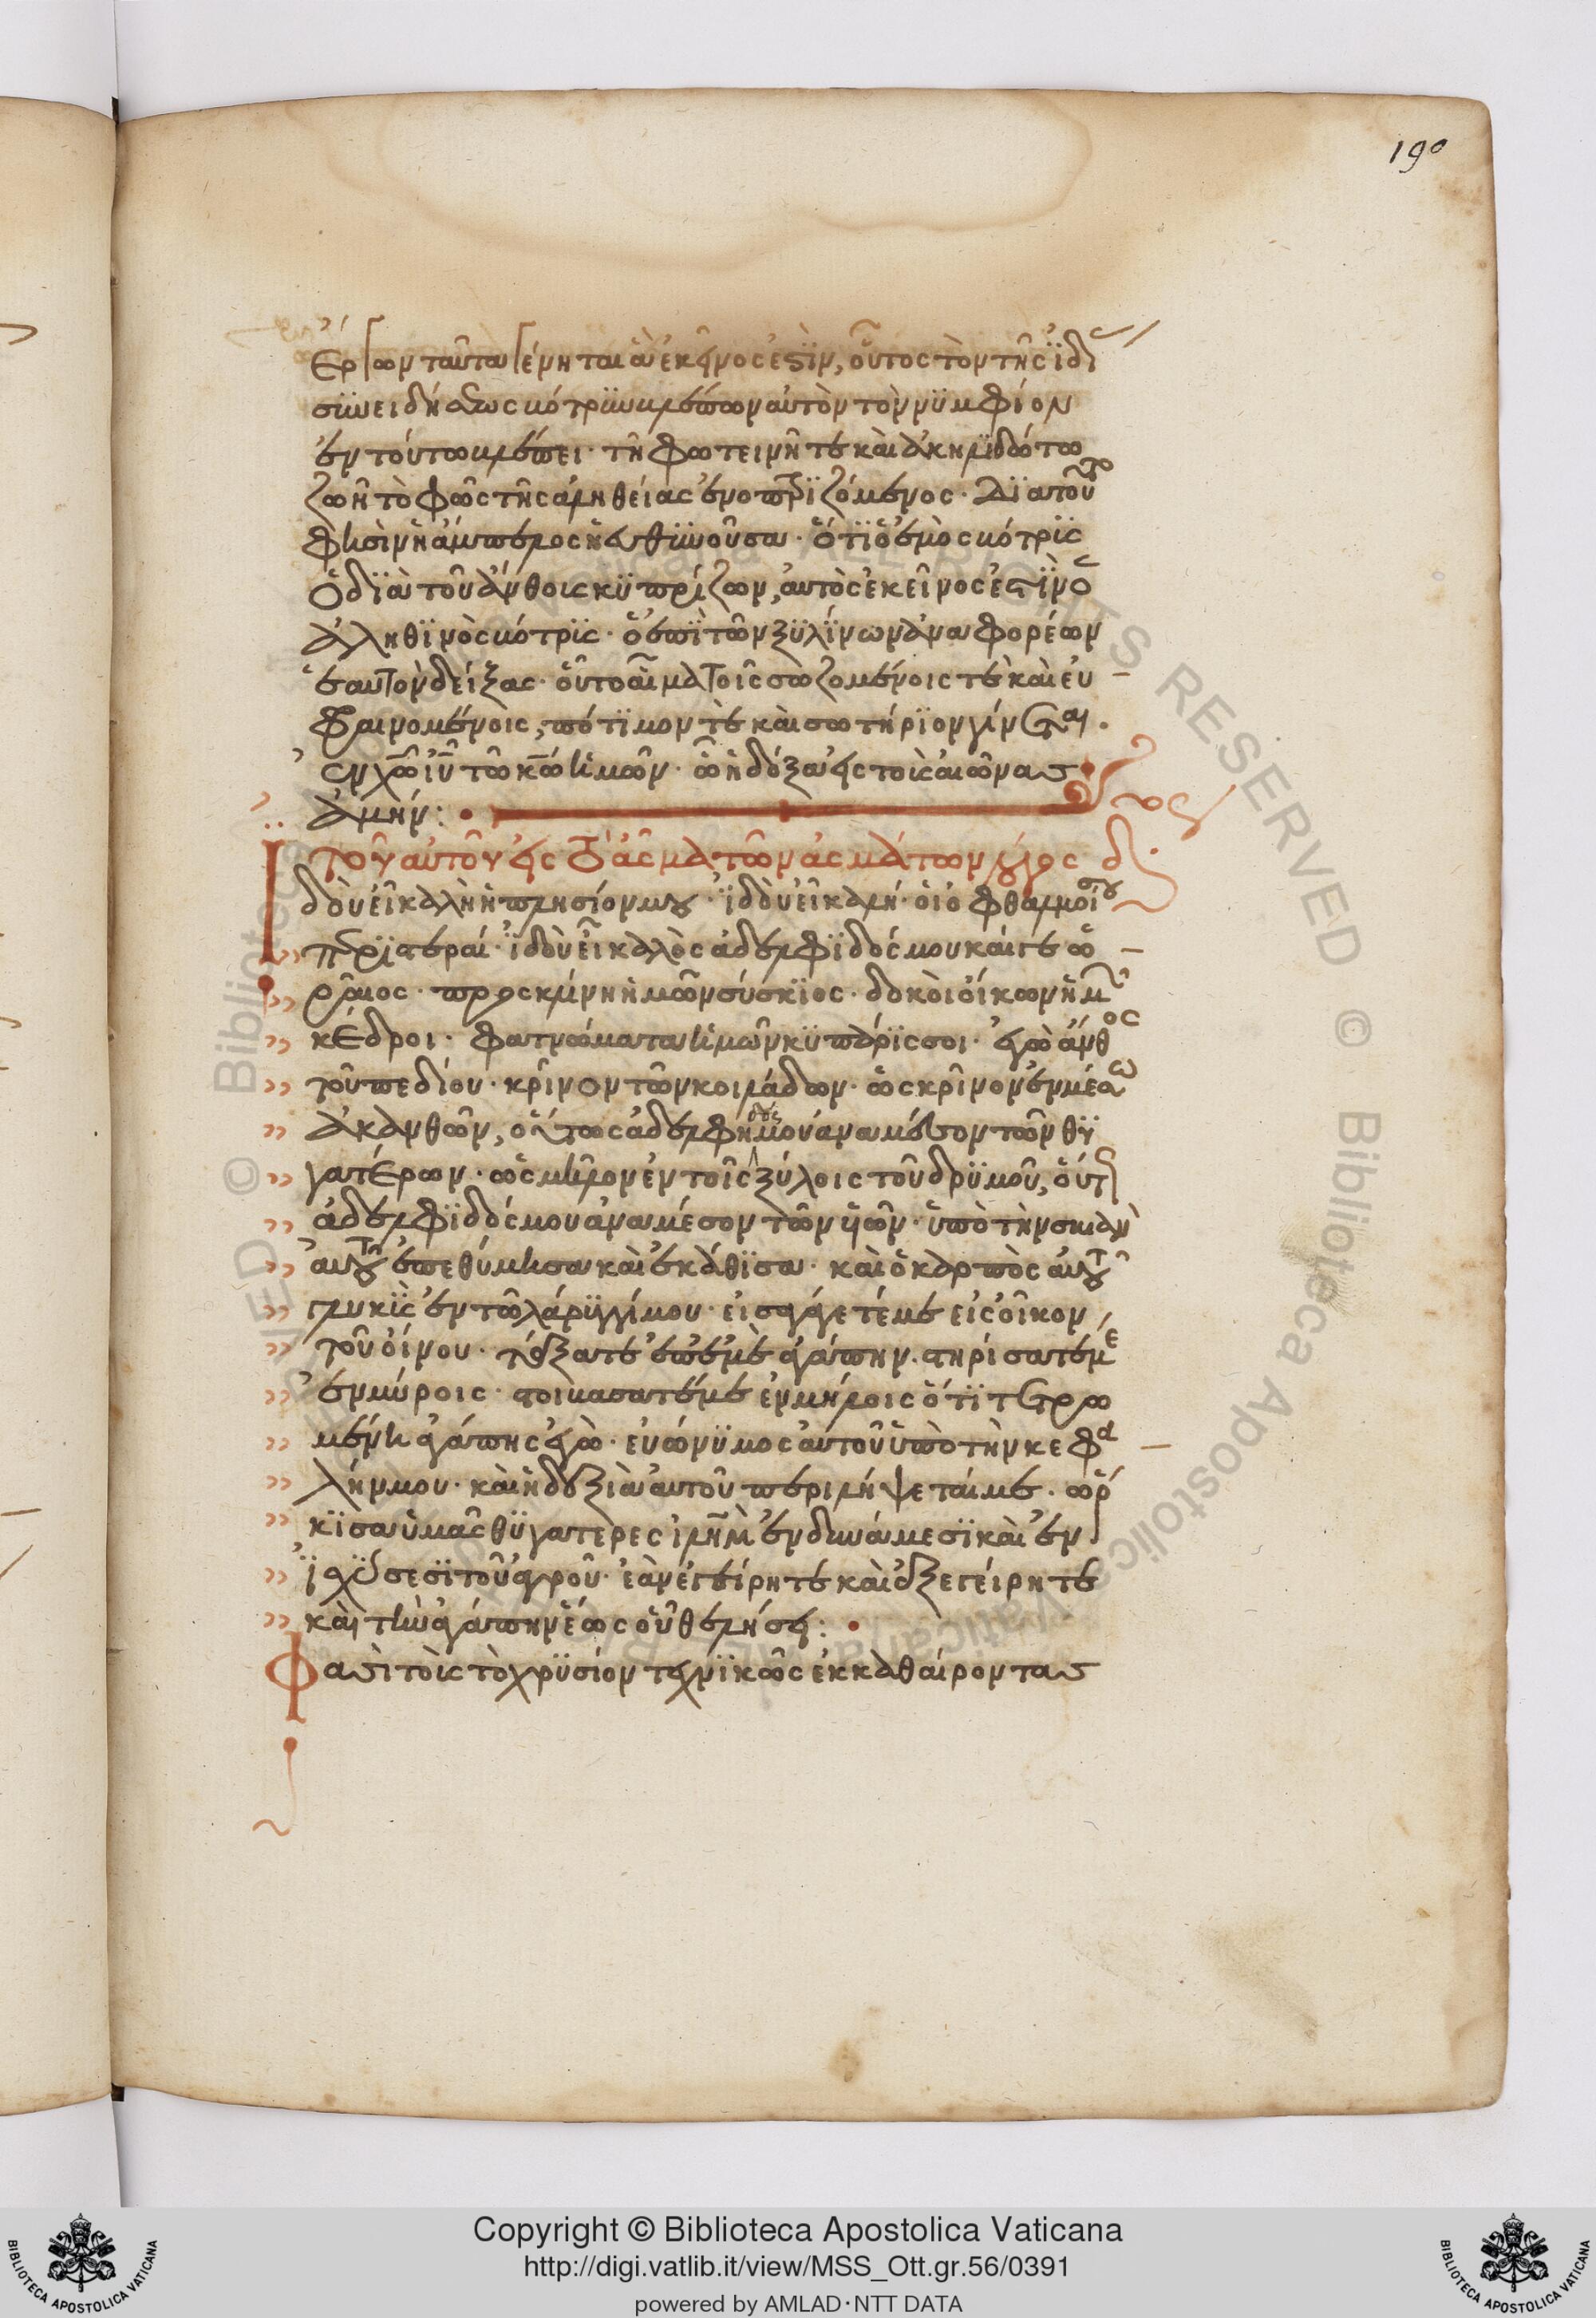 190
ἔργων ταῦτα γένηται ἃ ἐκεῖνος ἐστὶν, οὗτος τὸν τῆς ἰδί
συνειδήσεως βότρυν βλέπων αὐτὸν τὸν νυμφίον
ἐν τούτω βλέπει· τῆ φωτεινῆ τε καὶ ἀκηλιδώτω
ζωῆ τὸ φῶς τῆς ἀληθείας ἐνοπτριζόμενος· διατοῦτό
φησὶν ἡ ἄμπελος ἡ εὐθηνοῦσα· ὅτι ὁ ἐμὸς βότρυς
ὁ διὰ τοῦ ἄνθους κυπρίζων, αὐτὸς ἐκεῖνος ἐστὶν ὁ
ἀληθινὸς βότρυς· ὁ ἐπὶ τῶν ξυλίνων ἀναφορέων
ἑαυτὸν δείξας· οὗ τὸ αἷμα τοῖς σωζομένοις τὲ καὶ εὐ
φραινομένοις, πότιμον τὲ καὶ σωτήριον γίνεται.
ἐν χῶ ἰῦ τῶ κῶ ἡμῶν· ὧ ἡ δόξα εἰς τοὺς αἰῶνας
ἀμήν:
τοῦ αὐτοῦ εἰς τὸ ἆσμα τῶν ἀσμάτων λόγος δ
Ἰδοὺ εἶ καλὴ ἡ πλησίον μου· ἰδοὺ εἶ καλή· οἱ ὀφθαλμοί σου
περιστεραί· ἰδοὺ εἶ καλὸς ἀδελφιδός μου καί γε ὡ
ραῖος· πρὸς κλίνη ἡμῶν σύσκιος· δοκοὶ οἴκων ἡμ
κέδροι· φατνώματα ἡμῶν κυπάρισσοι· ἐγὼ ἄνθος
τοῦ πεδίου· κρίνον τῶν κοιλάδων· ὡς κρίνον ἐν μέσω
ἀκανθῶν, οὕτως ἀδελφή μου ἀναμέσον τῶν θυ
γατέρων· ὡς μῆλον ἐν τοῖς ξύλοις τοῦ δρυμοῦ, οὕτ
ἀδελφιδός μου ἀναμέσον τῶν υἱῶν· ὑπὸ τὴν σκιὰν
αὐτοῦ ἐπεθύμησα καὶ ἐκάθισα· καὶ ὁ καρπὸς αὐτοῦ
γλυκὺς ἐν τῶ λάρυγγί μου· εἰσαγάγετέ με εἰς οἶκον
τοῦ οἴνου· τάξατε ἐπ' ἐμὲ ἀγάπην. στηρίσατέ με
ἐν μύροις· στοιβάσατέ με ἐν μήλοις ὅτι τετρω
μένη ἀγάπης ἐγώ· εὐώνυμος αὐτοῦ ὑπὸ τὴν κεφα
λήν μου· καὶ ἡ δεξιὰ αὐτοῦ περιλήψεταί με. ὥρ
κισα ὑμᾶς θυγατέρες ἰλῆμ ἐν δυνάμεσι καὶ ἐν
ἰσχύσεσι τοῦ ἀγροῦ· ἐὰν ἐγείρητε καὶ ἐξεγείρητε
καὶ τὴν ἀγάπην ἕως οὗ θελήσῃ:
Φασὶ τοὺς τὸ χρυσίον τεχνικῶς ἐκκαθαίροντας
Copyright © Biblioteca Apostolica Vaticana
http://digi.vatlib.it/view/MSS_Ott.gr.56/0391
powered by AMLAD·NTT DATA